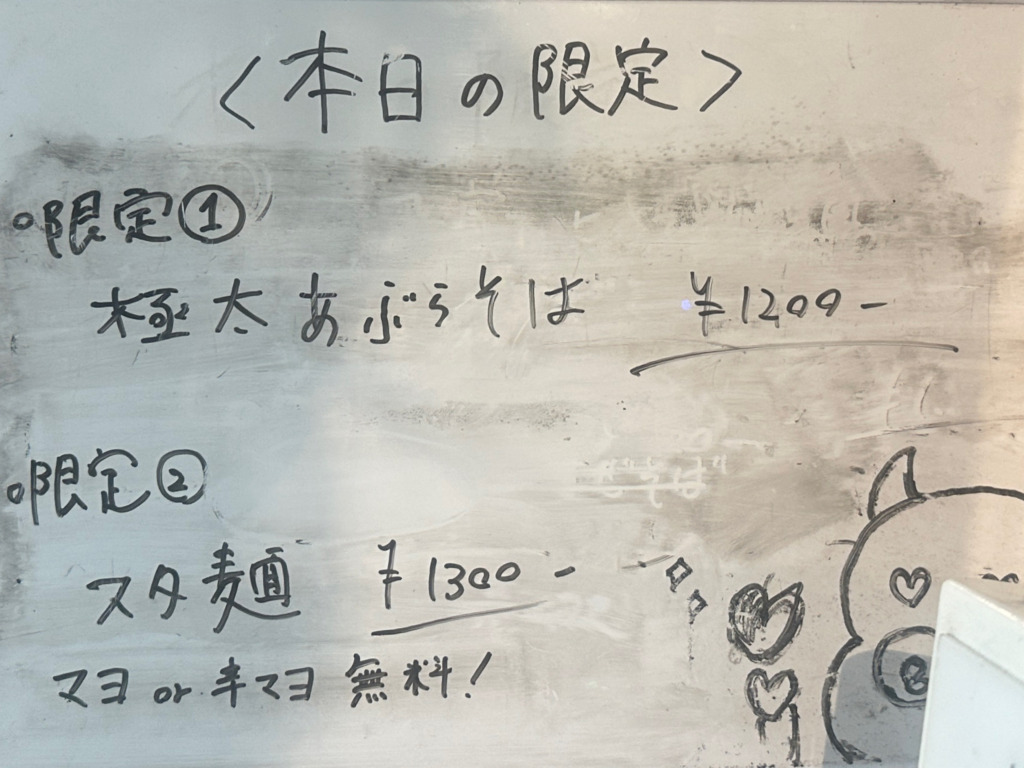 〈本日の限定〉
限定①
極太あぶらそば ¥1200-
限定②
スタ麺 ¥1300-
マヨ or 辛マヨ 無料!